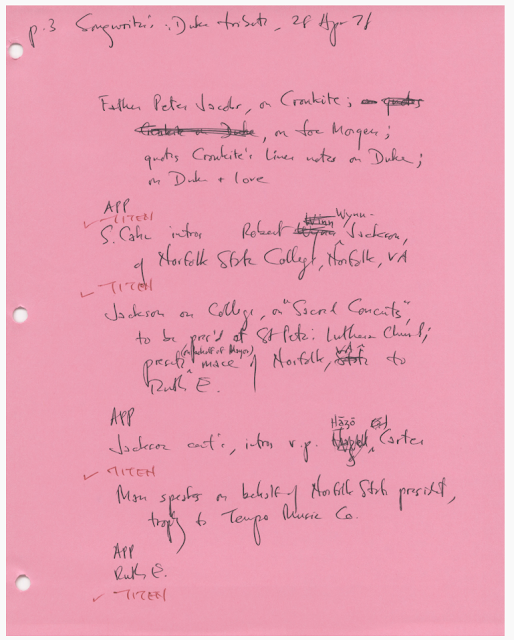 p.3 Songwriters: Duke tribute, 28 Apr 71
Father Peter Jacobs, on Cronkite; quotes
Cronkite on Duke, on Joe Morgen;
quotes Cronkite's liner notes on Duke;
on Duke + love
APP
✓ TITEN
S. Cahn intros Robert Wynn Jackson,
of Norfolk State College, Norfolk, VA
✓ TITEN
Jackson on College, on "Sacred Concerts",
to be pres'd at St Peter's Lutheran Church;
presents (on behalf of Mayor) mace of Norfolk, VA to
Ruth E.
APP
Jackson cont's, intro v.p. Carter
✓ TITEN
Man speaks on behalf of Norfolk State president,
trophy to Tempo Music Co.
APP
Ruth E.
✓ TITEN